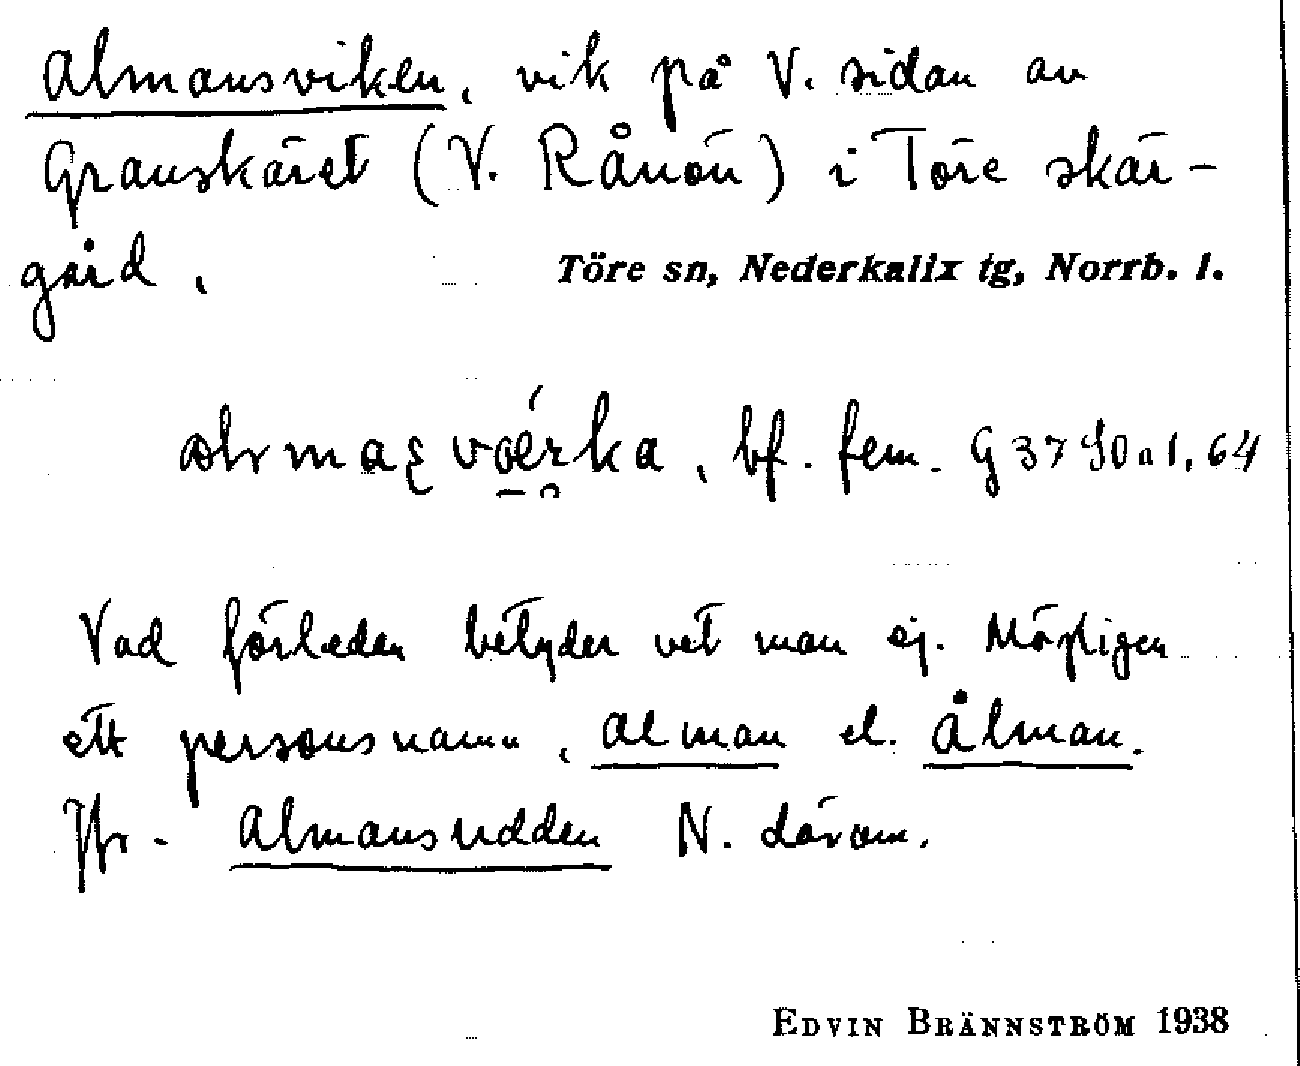 Almansviken, vik på V. sidan av
Granskäret (V. Rånön) i Töre skär-
gård.
Töre sn, Nederkalix tg, Norrb. l.
bf. fem. G 3790 a 1, 64
Vad förleden betyder vet man ej. Möjligen
ett personsnamn, Alman el. Ålman.
Jfr. Almansudden N. därom.
EDVIN BRÄNNSTRÖM 1938